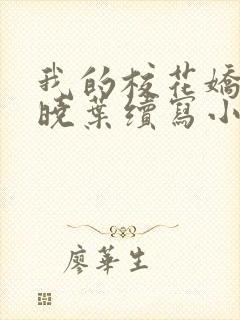 我的校花嬌
曉葉續寫小
廖華生